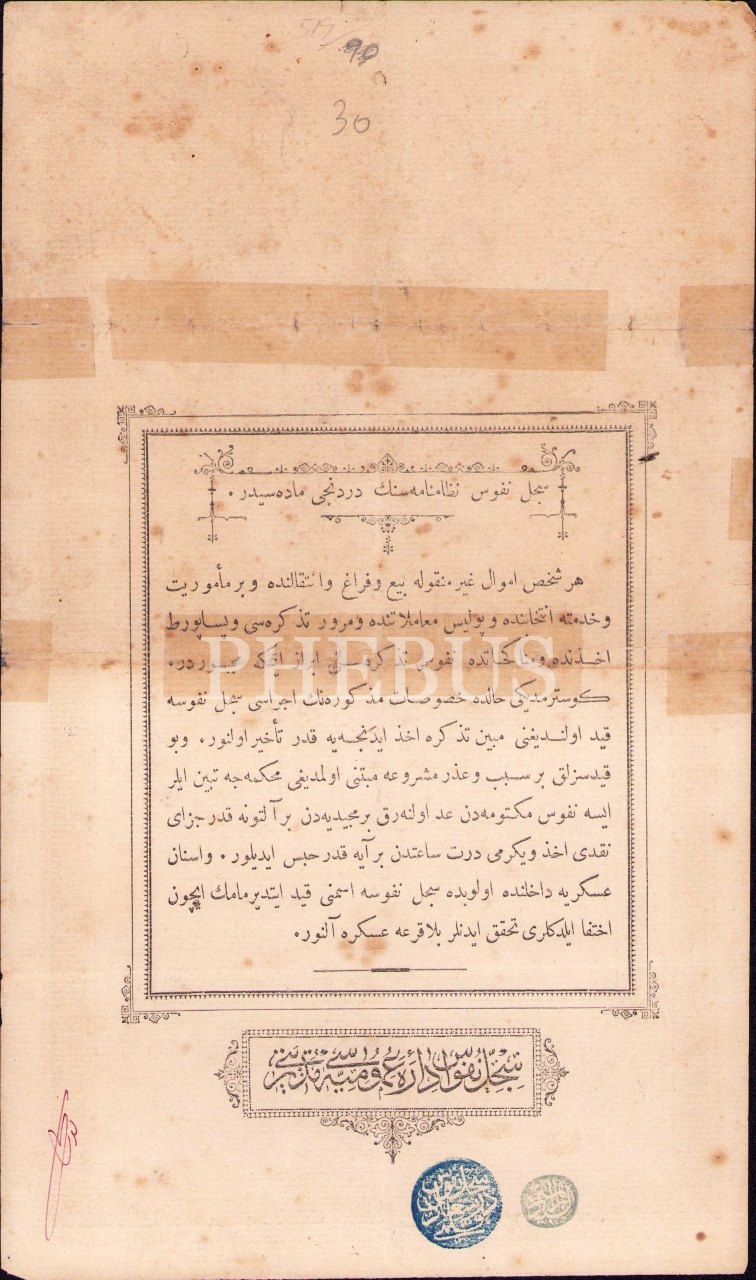 99
30
سجل نفوس نظامنامه‌سنك دردنجی ماده‌سیدر .
هر شخص اموال غیر منقوله بیع و فراغ وانتقالنده و بر مأموریت
و خدمته انتخابنده و پولیس معاملاتنده و مرور تذکره‌سی و پساپورط
اخذنده و مناکحاتده نفوس تذکره‌سنی ابراز ایتمکه مجبوردر .
کوسترمدیکی حالده خصوصات مذکوره‌نك اجراسی سجل نفوسه
قید اولندیغنی مبین تذکره اخذ ایدنجه‌یه قدر تأخیر اولنور . وبو
قیدسزلق بر سبب و عذر مشروعه مبتنی اولمدیغی محکمه‌جه تبین ایلر
ایسه نفوس مکتومه‌دن عد اولنه‌رق بر مجیدیه‌دن بر آلتونه قدر جزای
نقدی اخذ و یکرمی درت ساعتدن بر آیه قدر حبس ایدیلور . واسنان
عسکریه داخلنده اولوبده سجل نفوسه اسمنی قید ایتدیرمامك ایچون
اختفا ایلدکلری تحقق ایدنلر بلاقرعه عسکره آلنور .
سجل نفوس اداره عمومیه‌سی مدیریتی
PHEBUS